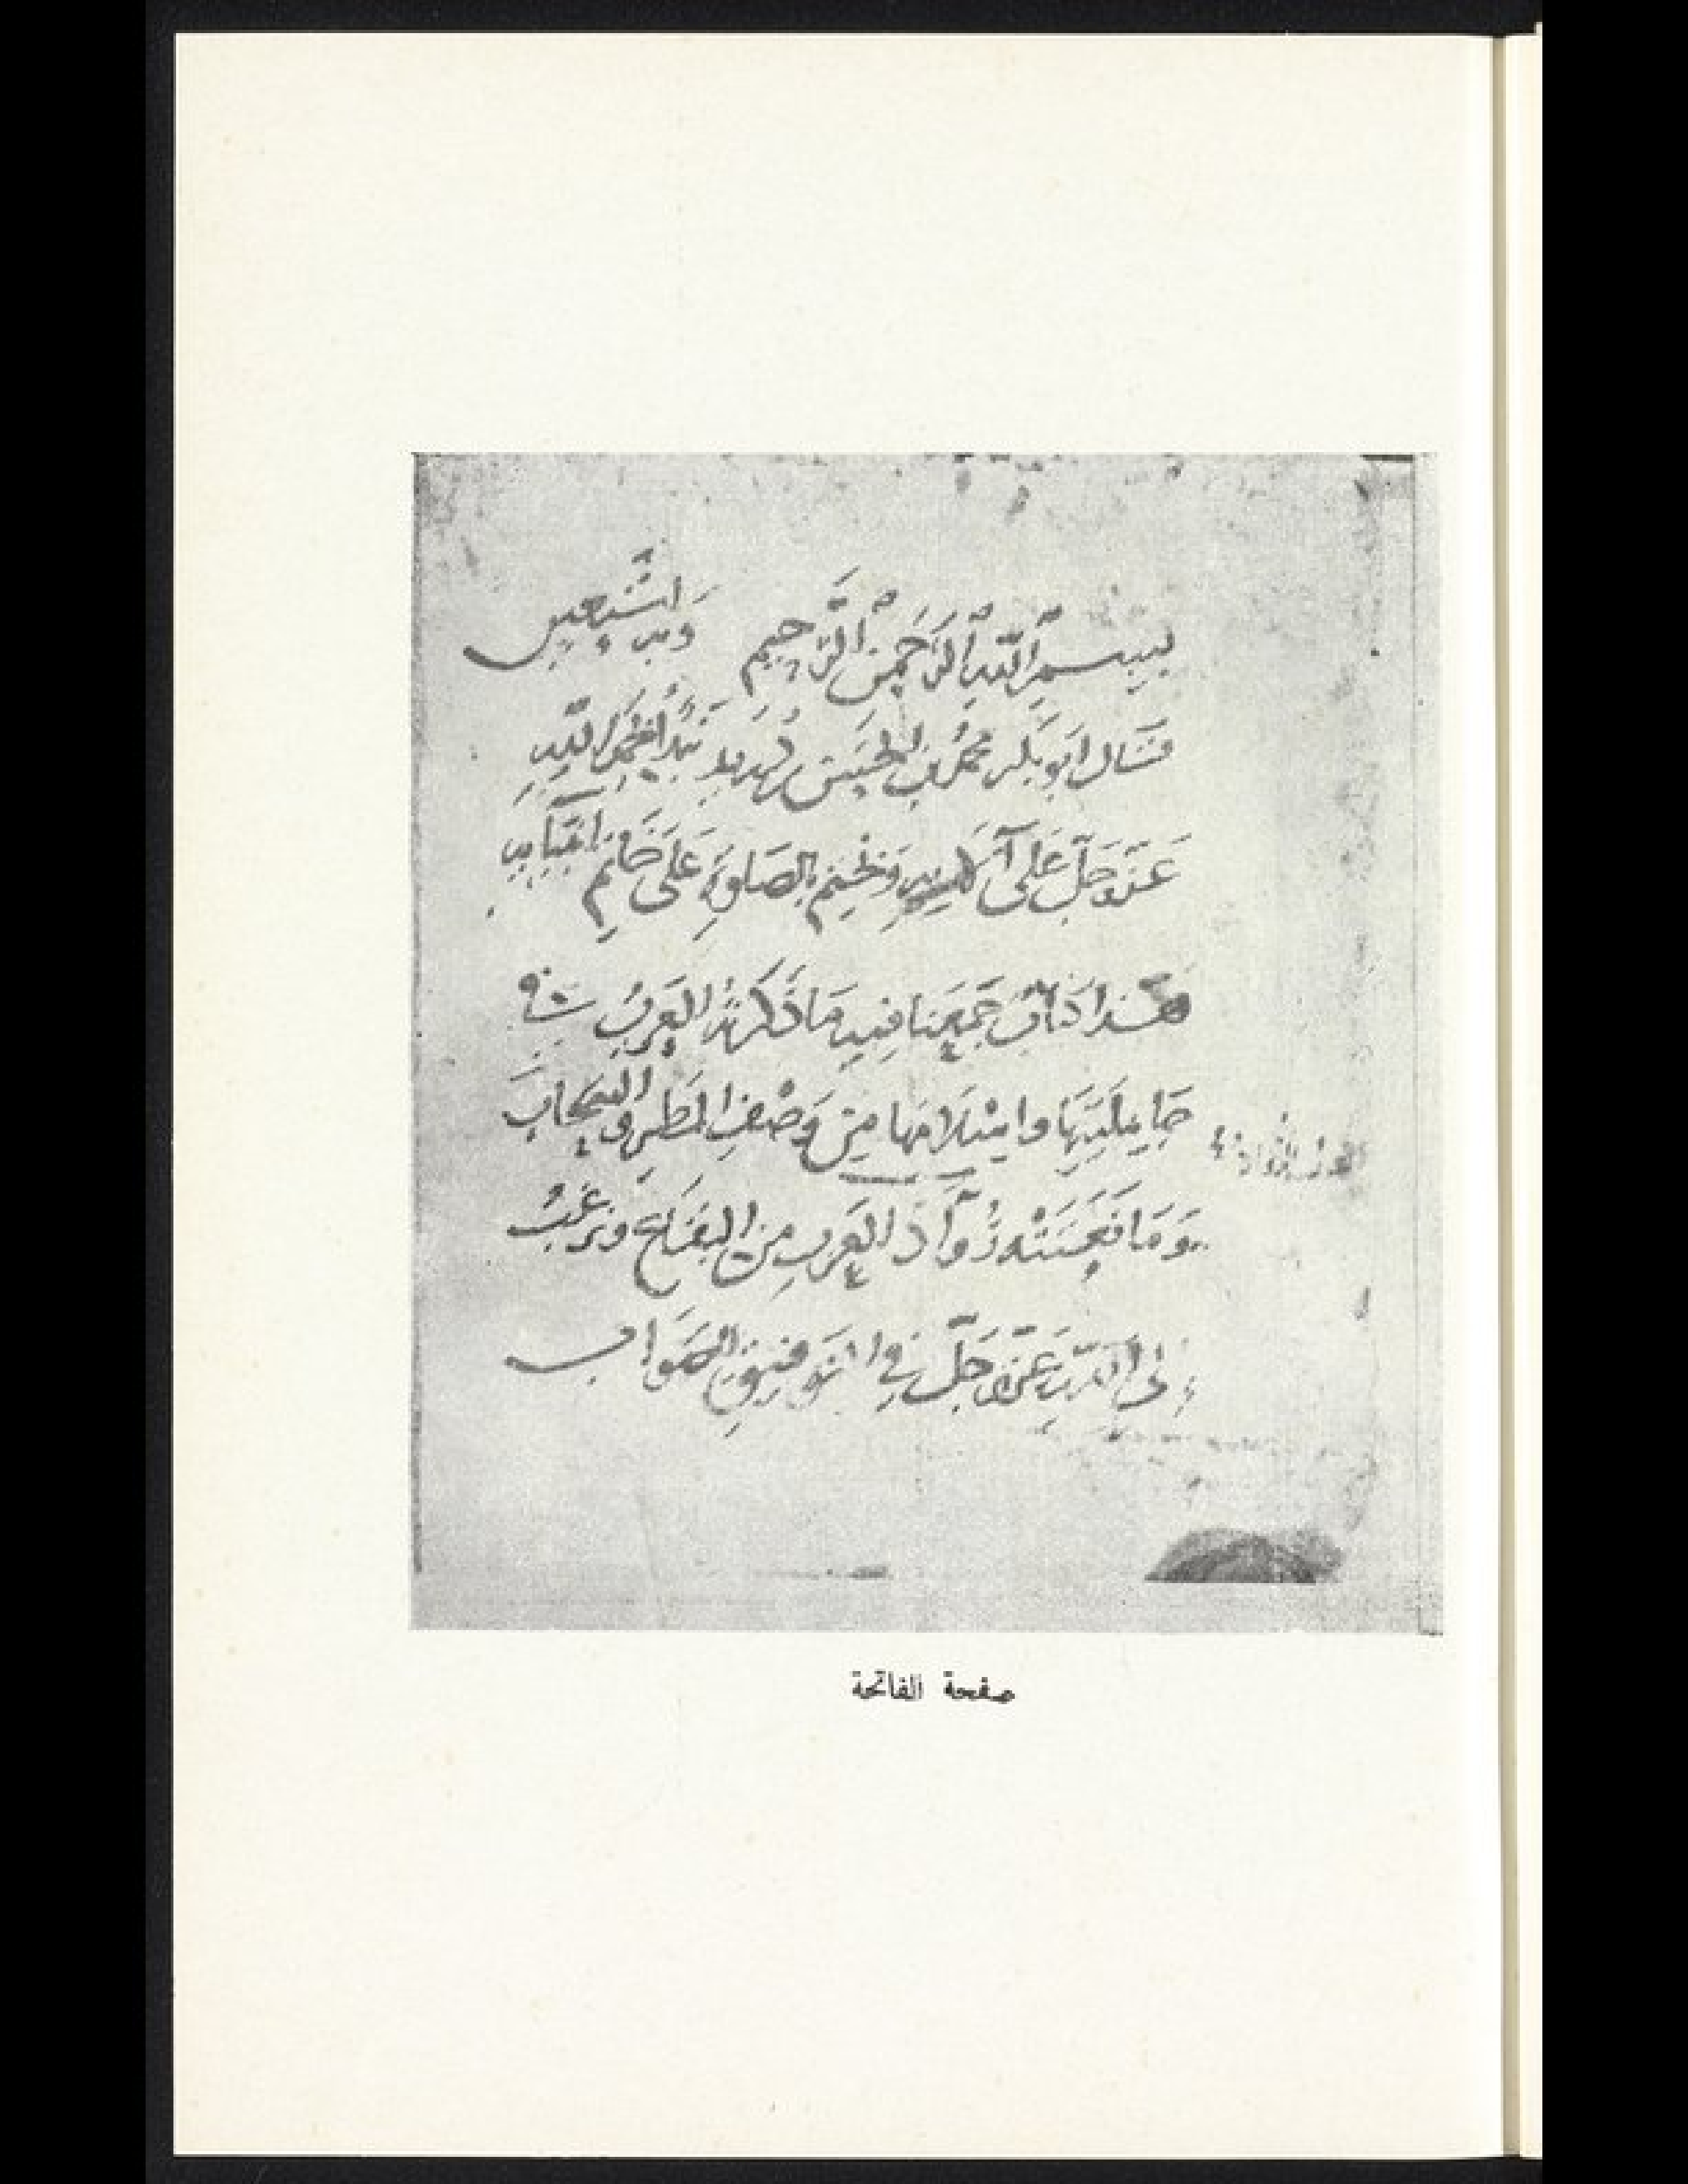 بِسْمِ اللّٰهِ الرَّحْمٰنِ الرَّحِيمِ وَبِهِ أَسْتَعِينُ
قَالَ أَبُو بَكْرٍ مُحَمَّدُ بْنُ الْحَسَنِ بْنِ دُرَيْدٍ نَبْدَأُ بِحَمْدِ اللّٰهِ
عَزَّ وَجَلَّ عَلَى آلَائِهِ وَنَخْتِمُ بِالصَّلَوةِ عَلَى خَاتَمِ أَنْبِيَائِهِ
هٰذَا كِتَابٌ جَمَعْنَا فِيهِ مَا ذَكَرَتْهُ الْعَرَبُ فِي
جَاهِلِيَّتِهَا وَإِسْلَامِهَا مِنْ وَصْفِ الْمَطَرِ وَالسَّحَابِ
وَمَا نَعَتَتْهُ رُوَّادُ الْعَرَبِ مِنَ الْبِقَاعِ وَنَرْغَبُ
إِلَى اللّٰهِ عَزَّ وَجَلَّ فِي التَّوْفِيقِ لِلصَّوَابِ
صفحة الفاتحة